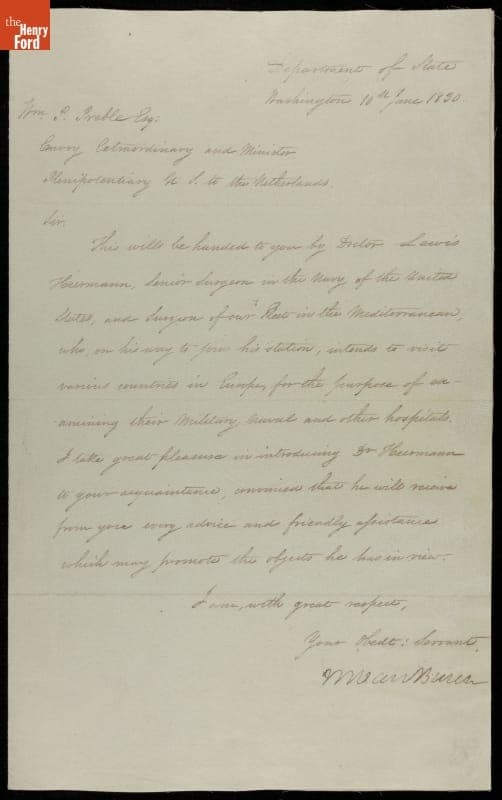 the
Henry
Ford
Department of State
Washington 10th June 1830.
Wm. P. Preble Esq:
Envoy Extraordinary and Minister
Plenipotentiary U. S. to the Netherlands.
Sir.
This will be handed to you by Doctor Lewis
Heermann, Senior Surgeon in the Navy of the United
States, and Surgeon of our Fleet in the Mediterranean,
who, on his way to join his station, intends to visit
various countries in Europe, for the purpose of ex-
amining their Military, Naval and other hospitals.
I take great pleasure in introducing Dr Heermann
to your acquaintance, convinced that he will receive
from you every advice and friendly assistance
which may promote the objects he has in view.
I am, with great respect,
Your Obedt: Servant,
M Van Buren